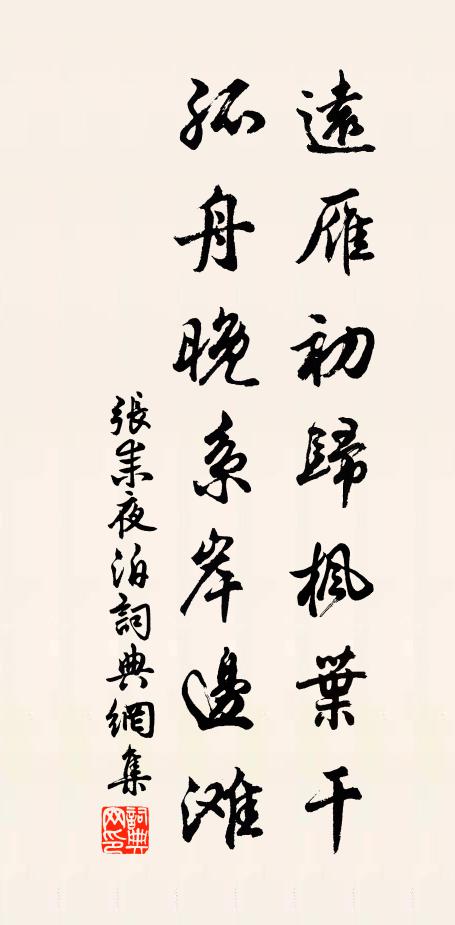 遠雁初歸楓葉干
孤舟晚系岸邊滩
張耒夜泊詞典網集
詞典網印